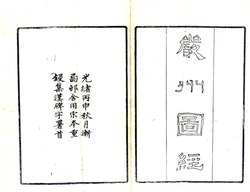 嚴州圖經
光緒丙申秋月漸
卥邨舍用宋本重
鋟集漢碑字署首